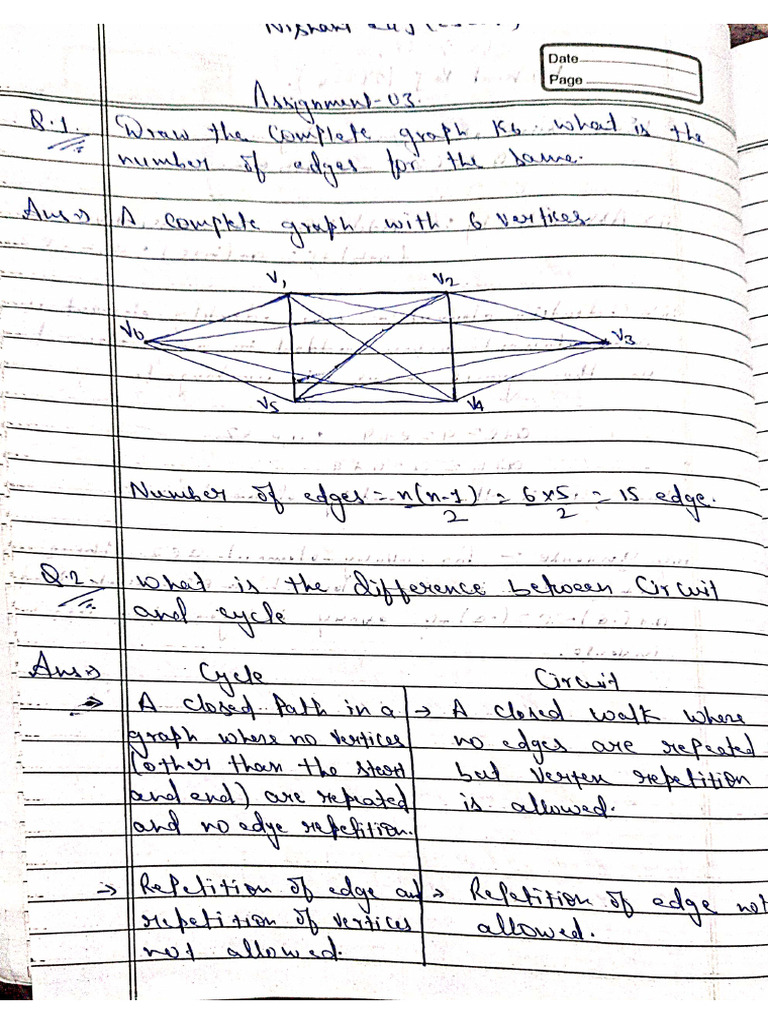 Date
Page
Assignment-03.
Q.1. Draw the complete graph K6. what is the
number of edges for the same.
Ans→ A complete graph with 6 vertices.
V1 V2
V0 V3
V5 V4
Number of edges = n(n-1)/2 = 6×5/2 = 15 edge.
Q.2. What is the difference between Circuit
and cycle
Ans→ Cycle Circuit
→ A closed Path in a → A closed walk where
graph where no vertices no edges are repeated
(other than the start but vertex repetition
and end) are repeated is allowed.
and no edge repetition.
→ Repetition of edge an → Repetition of edge not
repetition of vertices allowed.
not allowed.